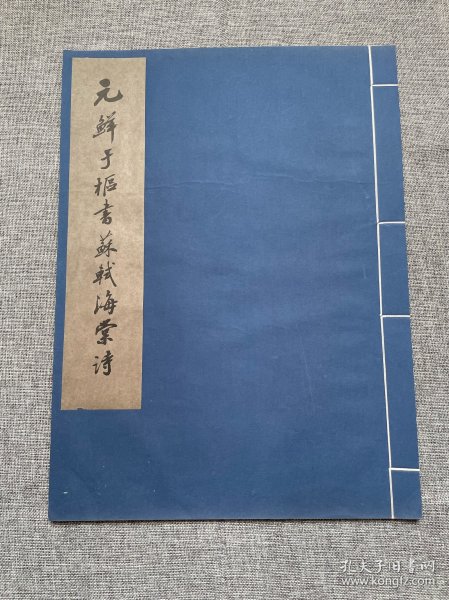 元鲜于樞書蘇軾海棠诗
孔夫子旧书网
www.kongfz.com